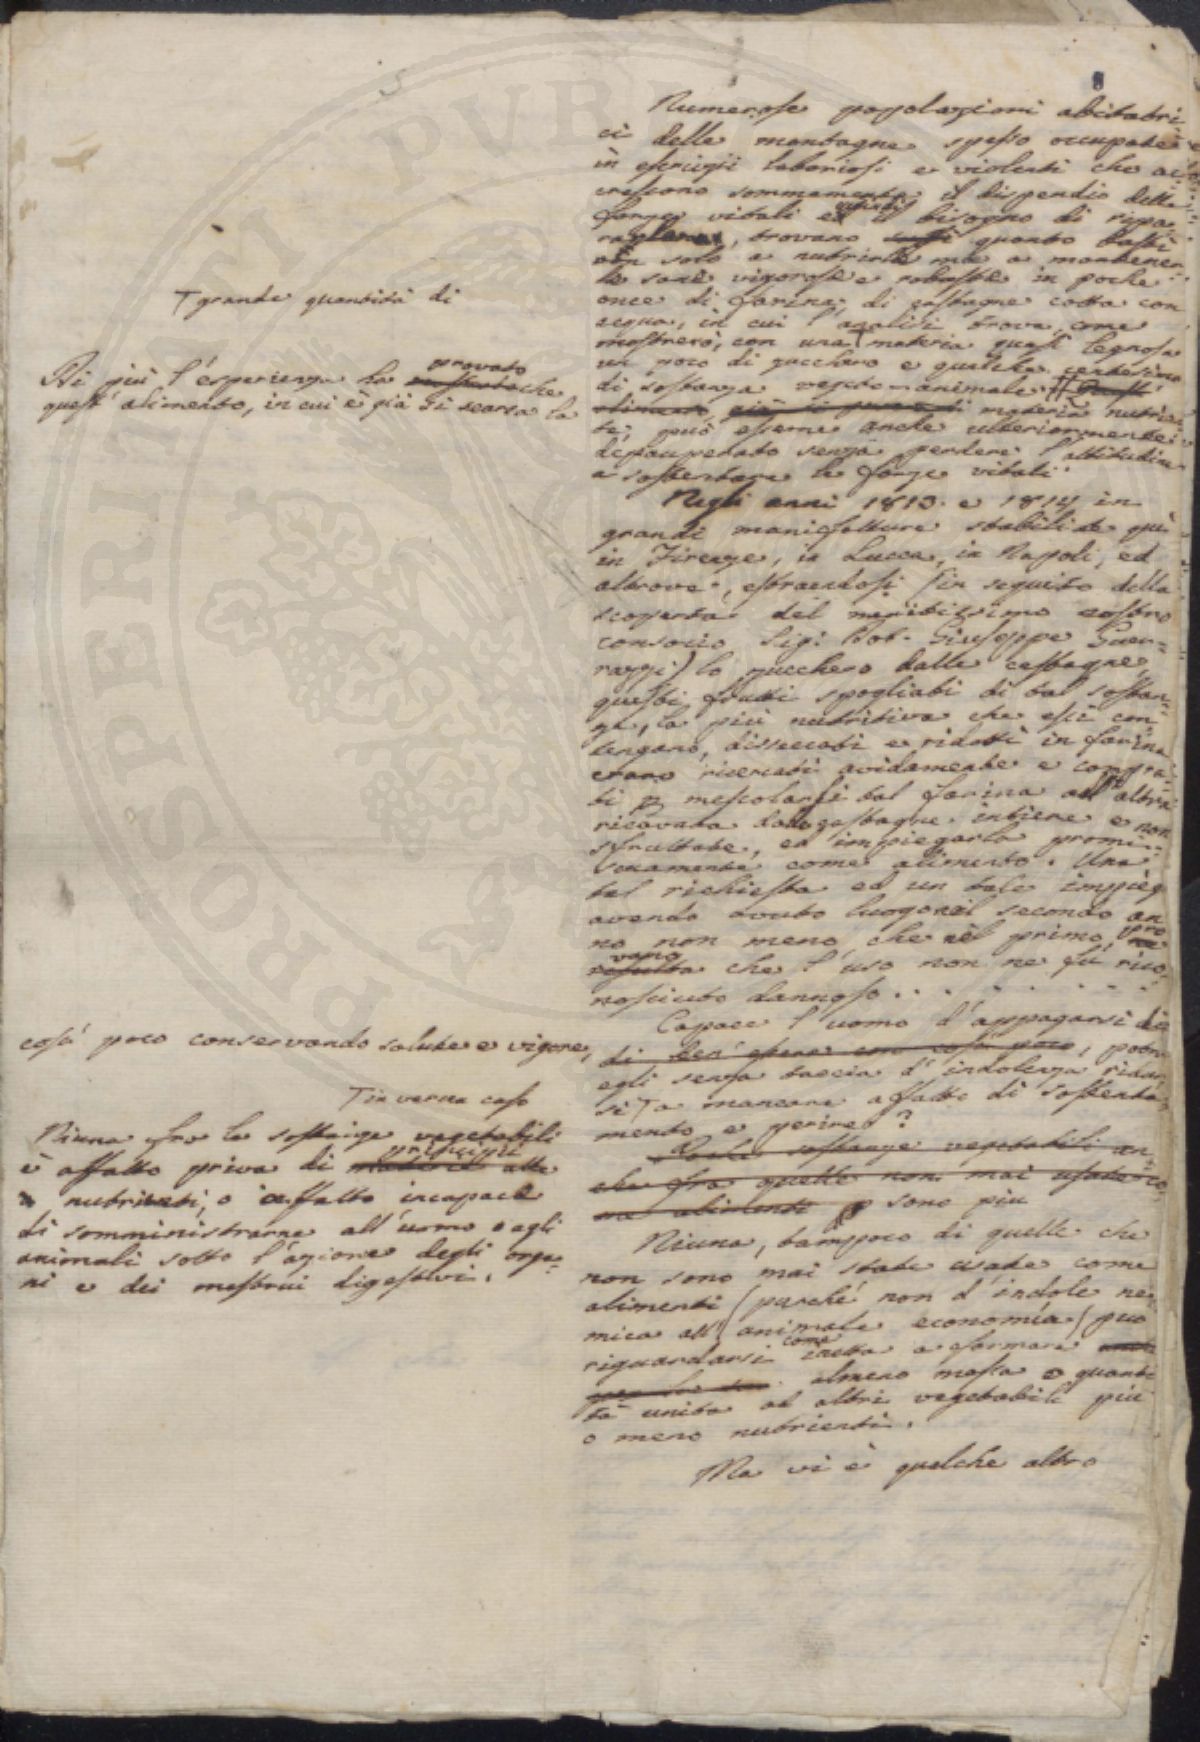 Numerose popolazioni abitatri
ci delle montagne spesso occupate
in esercizii laboriosi e violenti che ac
crescono sommamente il dispendio delle
forze vitali e il bisogno di ripa
, trovano quanto basti
non solo a nutrirle ma a mantener
le sane vigorose e robuste in poche
once di farina di castagne cotta con
acqua, in cui l'analisi trova, come
mostrerò, con una T materia quasi legnosa
un poco di zucchero e qualche centesimo
di sostanza vegeto-animale
materia nutrien
te, può esserne anche ulteriormente
depauperato senza perdere l'attitudine
a sostentare le forze vitali.
Negli anni 1813. e 1814 in
grandi manifatture stabilite quì
in Firenze, in Lucca, in Napoli, ed
altrove, estraendosi (in seguito della
scoperta del meritissimo nostro
consocio Sig: Dot. Giuseppe Guer-
razzi) lo zucchero dalle castagne,
questi frutti spogliati di tal sostan-
za, la più nutritiva che essi con
tengano, disseccati e ridotti in farina
erano ricercati avidamente e compra-
ti p mescolarsi tal farina all'altra
ricavata dalle castagne intiere e non
sfruttate, ed impiegarla promi-
scuamente come alimento. Una
tal richiesta ed un tale impiego
avendo avuto luogo nel secondo an
no non meno che nel primo, pro
vano
resulta che l'uso non ne fu rico
nosciuto dannoso . . . . . . . .
Capace l'uomo d'appagarsi di
di ben essere con così poco, potrà
egli senza taccia d'indolenza ridur
si T a mancare affatto di sostenta
mento e perire?
Poche sostanze vegetabili an-
che fra quelle non mai usate co
me alimenti sono più
Niuna, tampoco di quelle che
non sono mai state usate come
alimenti (purché non d'indole ne
mica all'animale economía) può
riguardarsi come inetta a formare
almeno massa o quanti
tà unita ad altri vegetabili più
o meno nutrienti.
Ma vi è qualche altro
T grande quantità di
Di più l'esperienza ha provato che
quest'alimento, in cui è già sì scarsa la
così poco conservando salute e vigore,
T in verun caso
Niuna fra le sostanze vegetabili
è affatto priva di principii atti
a nutrirci, o affatto incapace
di somministrarne all'uomo o agli
animali sotto l'azione degli orga-
ni e dei mestrui digestivi.